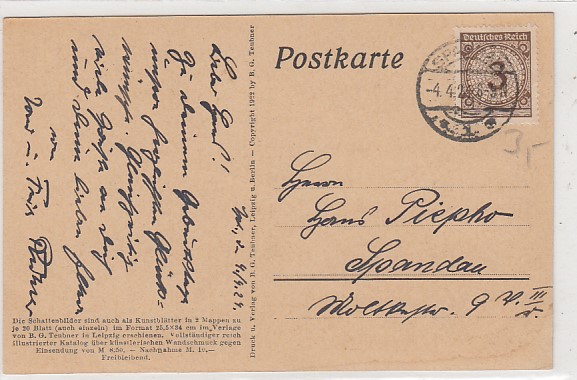 Postkarte
Deutsches Reich
3
SPA
-4.4.2
* 1. *
3,-
Herrn
Hans Piepho
Spandau
Moltkestr. 9 V. III
r.
d. 4/4.24.
Lieber Hans!
Zu deinem Geburtstage
unsere herzlichsten Glück-
wünsche. Gleichzeitig
viele Grüße an dich
und deine lieben Eltern
von
u. Frau
Die Schattenbilder sind auch als Kunstblätter in 2 Mappen zu
je 20 Blatt (auch einzeln) im Format 25,5×34 cm im Verlage
von B. G. Teubner in Leipzig erschienen. Vollständiger reich
illustrierter Katalog über künstlerischen Wandschmuck gegen
Einsendung von M 8.50. — Nachnahme M. 10.—
Freibleibend.
Druck u. Verlag von B. G. Teubner, Leipzig u. Berlin — Copyright 1922 by B. G. Teubner